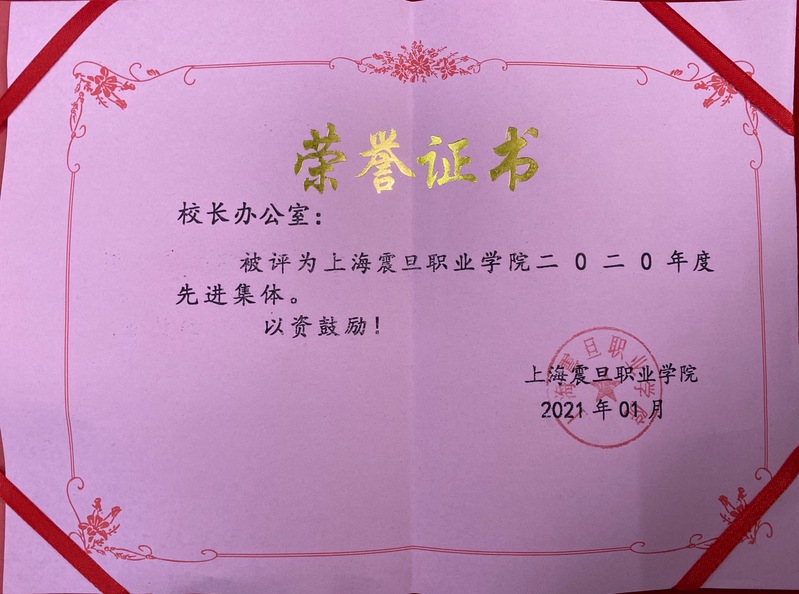 荣誉证书
校长办公室：
被评为上海震旦职业学院二0二0年度
先进集体。
以资鼓励！
上海震旦职业学院
2021年01月
上海震旦职业学院